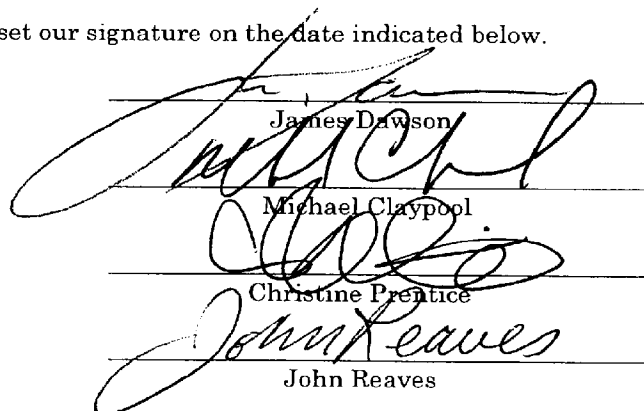 set our signature on the date indicated below.
James Dawson
Michael Claypool
Christine Prentice
John Reaves
John Reaves